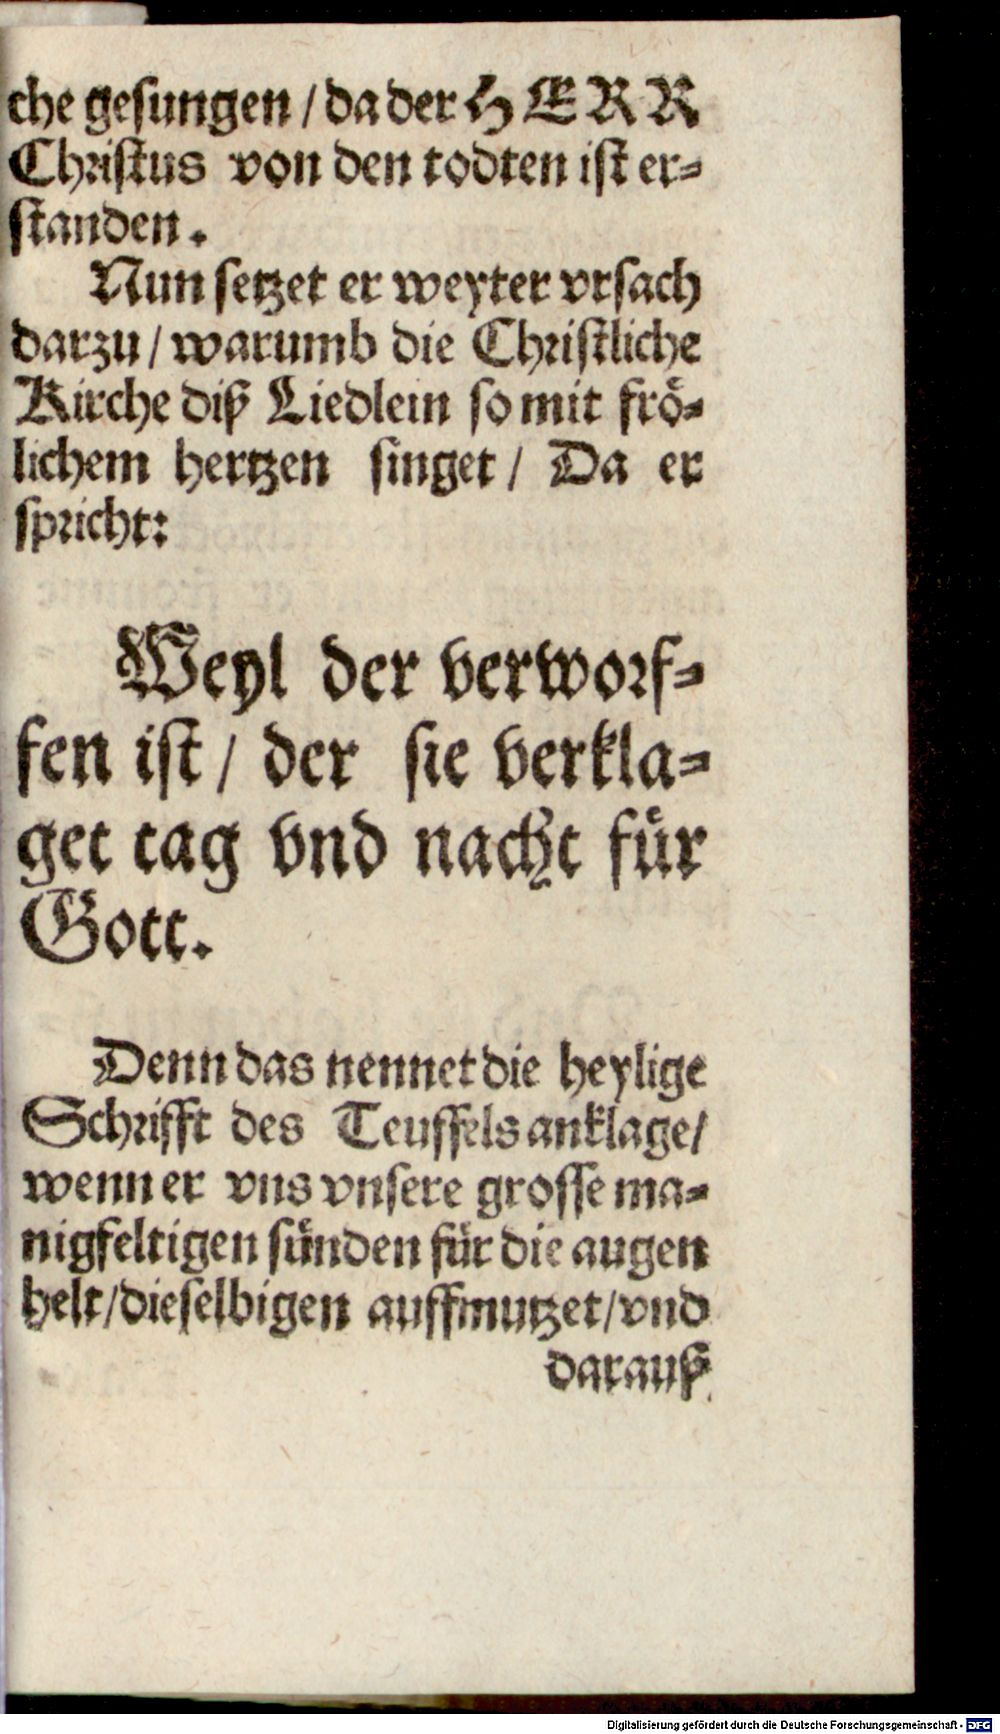 che gesungen / da der HERR
Christus von den todten ist er⸗
standen.
Nun setzet er weyter vrsach
darzu / warumb die Christliche
Kirche diß Liedlein so mit frö⸗
lichem hertzen singet / Da er
spricht:
Weyl der verworf⸗
fen ist / der sie verkla⸗
get tag vnd nacht für
Gott.
Denn das nennet die heylige
Schrifft des Teuffels anklage /
wenn er vns vnsere grosse ma⸗
nigfeltigen sünden für die augen
helt / dieselbigen auffmutzet / vnd
darauß
Digitalisierung gefördert durch die Deutsche Forschungsgemeinschaft - DFG